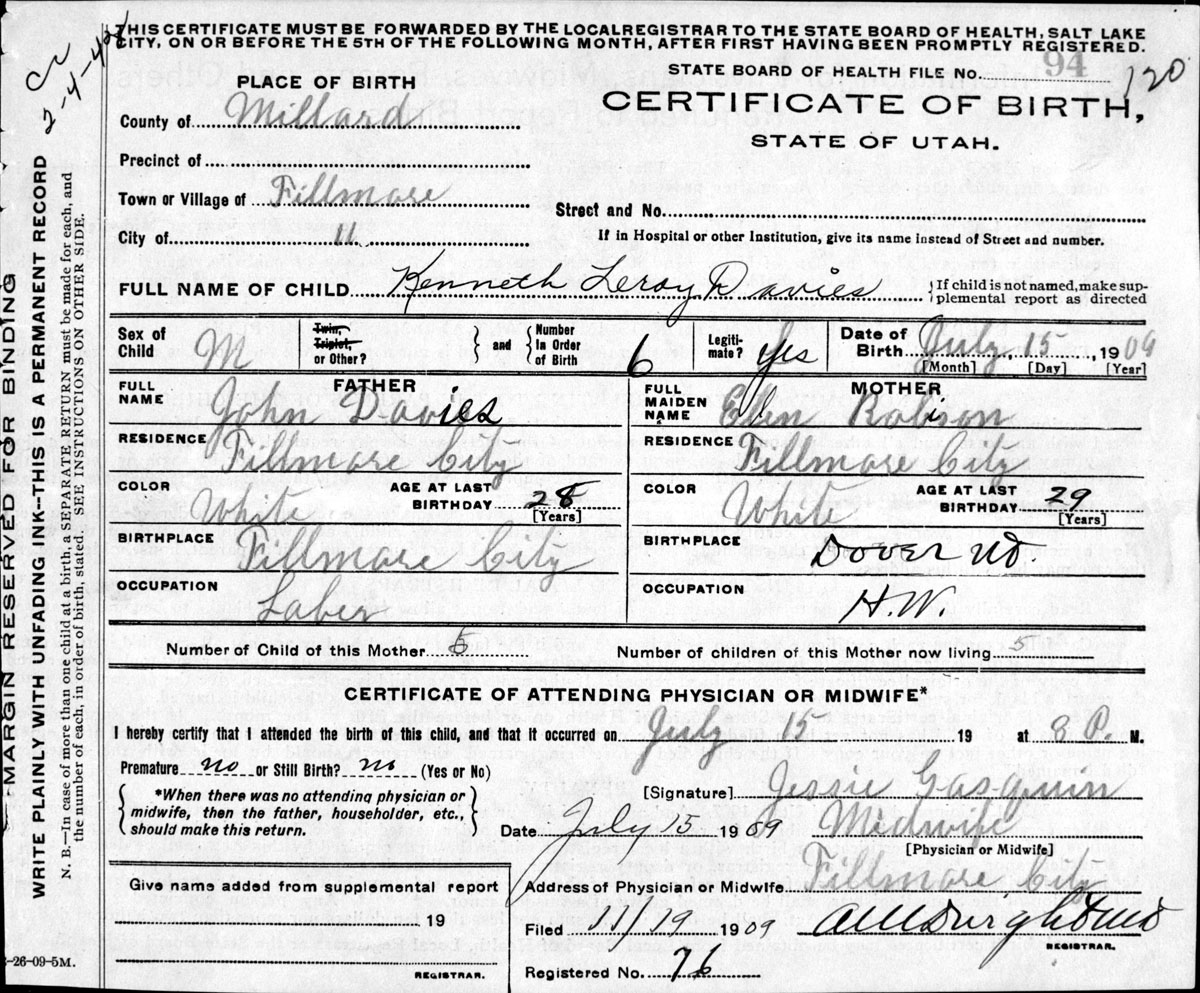 THIS CERTIFICATE MUST BE FORWARDED BY THE LOCAL REGISTRAR TO THE STATE BOARD OF HEALTH, SALT LAKE
CITY, ON OR BEFORE THE 5TH OF THE FOLLOWING MONTH, AFTER FIRST HAVING BEEN PROMPTLY REGISTERED.
STATE BOARD OF HEALTH FILE No. 94 120
PLACE OF BIRTH
CERTIFICATE OF BIRTH,
STATE OF UTAH.
County of Millard
Precinct of
Town or Village of Fillmore
Street and No.
City of "
If in Hospital or other Institution, give its name instead of Street and number.
FULL NAME OF CHILD Kenneth Leroy Davies { If child is not named, make sup-
plemental report as directed
Sex of Child M Twin, Triplet, or Other? } and { Number In Order of Birth 6 Legiti-mate? Yes Date of Birth July 15, 1909
[Month] [Day] [Year]
FATHER
FULL NAME John Davies
RESIDENCE Fillmore City
COLOR White AGE AT LAST BIRTHDAY 28
[Years]
BIRTHPLACE Fillmore City
OCCUPATION Laber
MOTHER
FULL MAIDEN NAME Ellen Robison
RESIDENCE Fillmore City
COLOR White AGE AT LAST BIRTHDAY 29
[Years]
BIRTHPLACE Dover Ut
OCCUPATION H.W.
Number of Child of this Mother Number of children of this Mother now living 5
CERTIFICATE OF ATTENDING PHYSICIAN OR MIDWIFE*
I hereby certify that I attended the birth of this child, and that it occurred on July 15 19 at 8 P. M.
Premature no or Still Birth? no (Yes or No)
*When there was no attending physician or
midwife, then the father, householder, etc.,
should make this return.
[Signature] Jessie Gasquin
Date July 15 1909 Midwife
[Physician or Midwife]
Address of Physician or Midwife Fillmore City
Give name added from supplemental report
19
REGISTRAR.
Filed 11/19 1909
REGISTRAR.
Registered No. 76
-26-09-5M.
MARGIN RESERVED FOR BINDING
WRITE PLAINLY WITH UNFADING INK--THIS IS A PERMANENT RECORD
N. B.--In case of more than one child at a birth, a SEPARATE RETURN must be made for each, and
the number of each, in order of birth, stated. SEE INSTRUCTIONS ON OTHER SIDE.